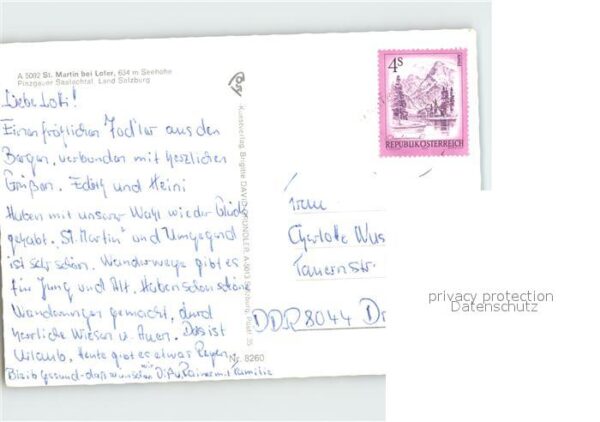 A 5092 St. Martin bei Lofer, 634 m Seehöhe
Pinzgauer Saalachtal, Land Salzburg
Liebe Lotti!
Einen fröhlichen Jodler aus den
Bergen, verbunden mit herzlichen
Grüßen. Edith und Heini
Haben mit unserer Wahl wieder Glück
gehabt. "St. Martin" und Umgegend
ist sehr schön. Wanderwege gibt es
für Jung und Alt. Haben schon schöne
Wanderungen gemacht, durch
herrliche Wiesen u. Auen. Das ist
Urlaub. Heute gibt es etwas Regen.
Bleib gesund - daß wünschen wir Dir u. Rainer mit Familie
Kunstverlag Brigitte DAVID-GRÜNDLER, A-5013 Salzburg, Postf. 35
Nr. 8260
4S
REPUBLIK ÖSTERREICH
Frau
Charlotte
Tauernstr.
DDR 8044 Dr
privacy protection
Datenschutz